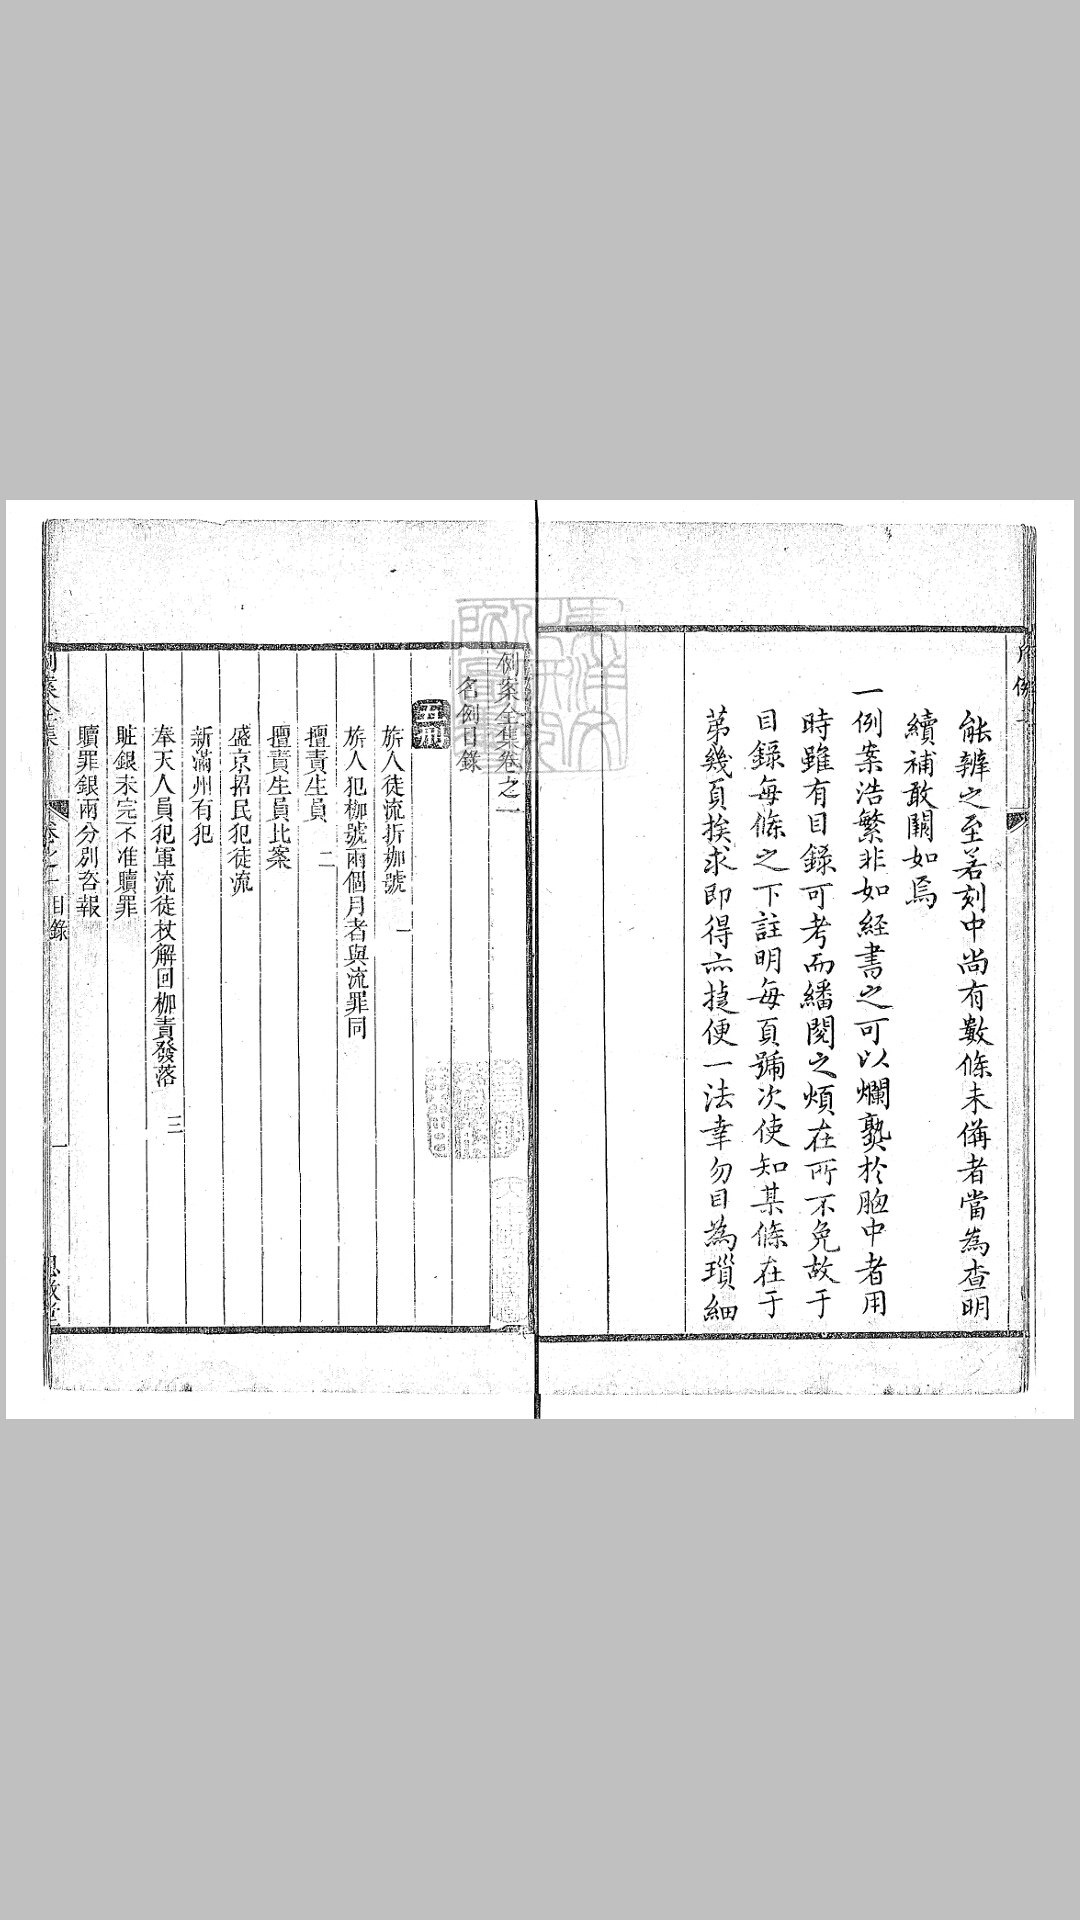 能辨之至若刻中尚有數條未僃者當為查明
續補敢闕如焉
一例案浩繁非如經書之可以爛熟於胸中者用
時雖有目錄可考而繙閱之煩在所不免故于
目録每條之下註明每頁號次使知某條在于
苐幾頁挨求即得亦捷便一法幸勿目為瑣細
例案全集卷之一
名例目錄
五刑
旂人徒流折枷號 一
旂人犯枷號兩個月者與流罪同
擅責生員 二
擅責生員比案
盛京招民犯徒流
新滿州有犯
奉天人員犯軍流徒杖解回枷責發落 三
贓銀未完不准贖罪
贖罪銀兩分別咨報
例案全集 卷之一目錄 一 思敬堂